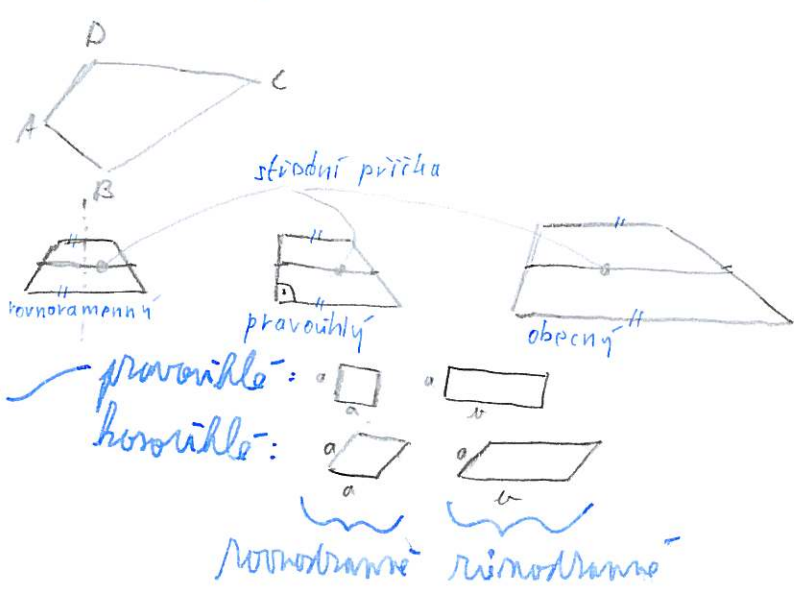 D
C
A
B
střední příčka
rovnoramenný
pravoúhlý
obecný
pravoúhlé: a a a b
kosoúhlé: a a a b
rovnostranné různostranné